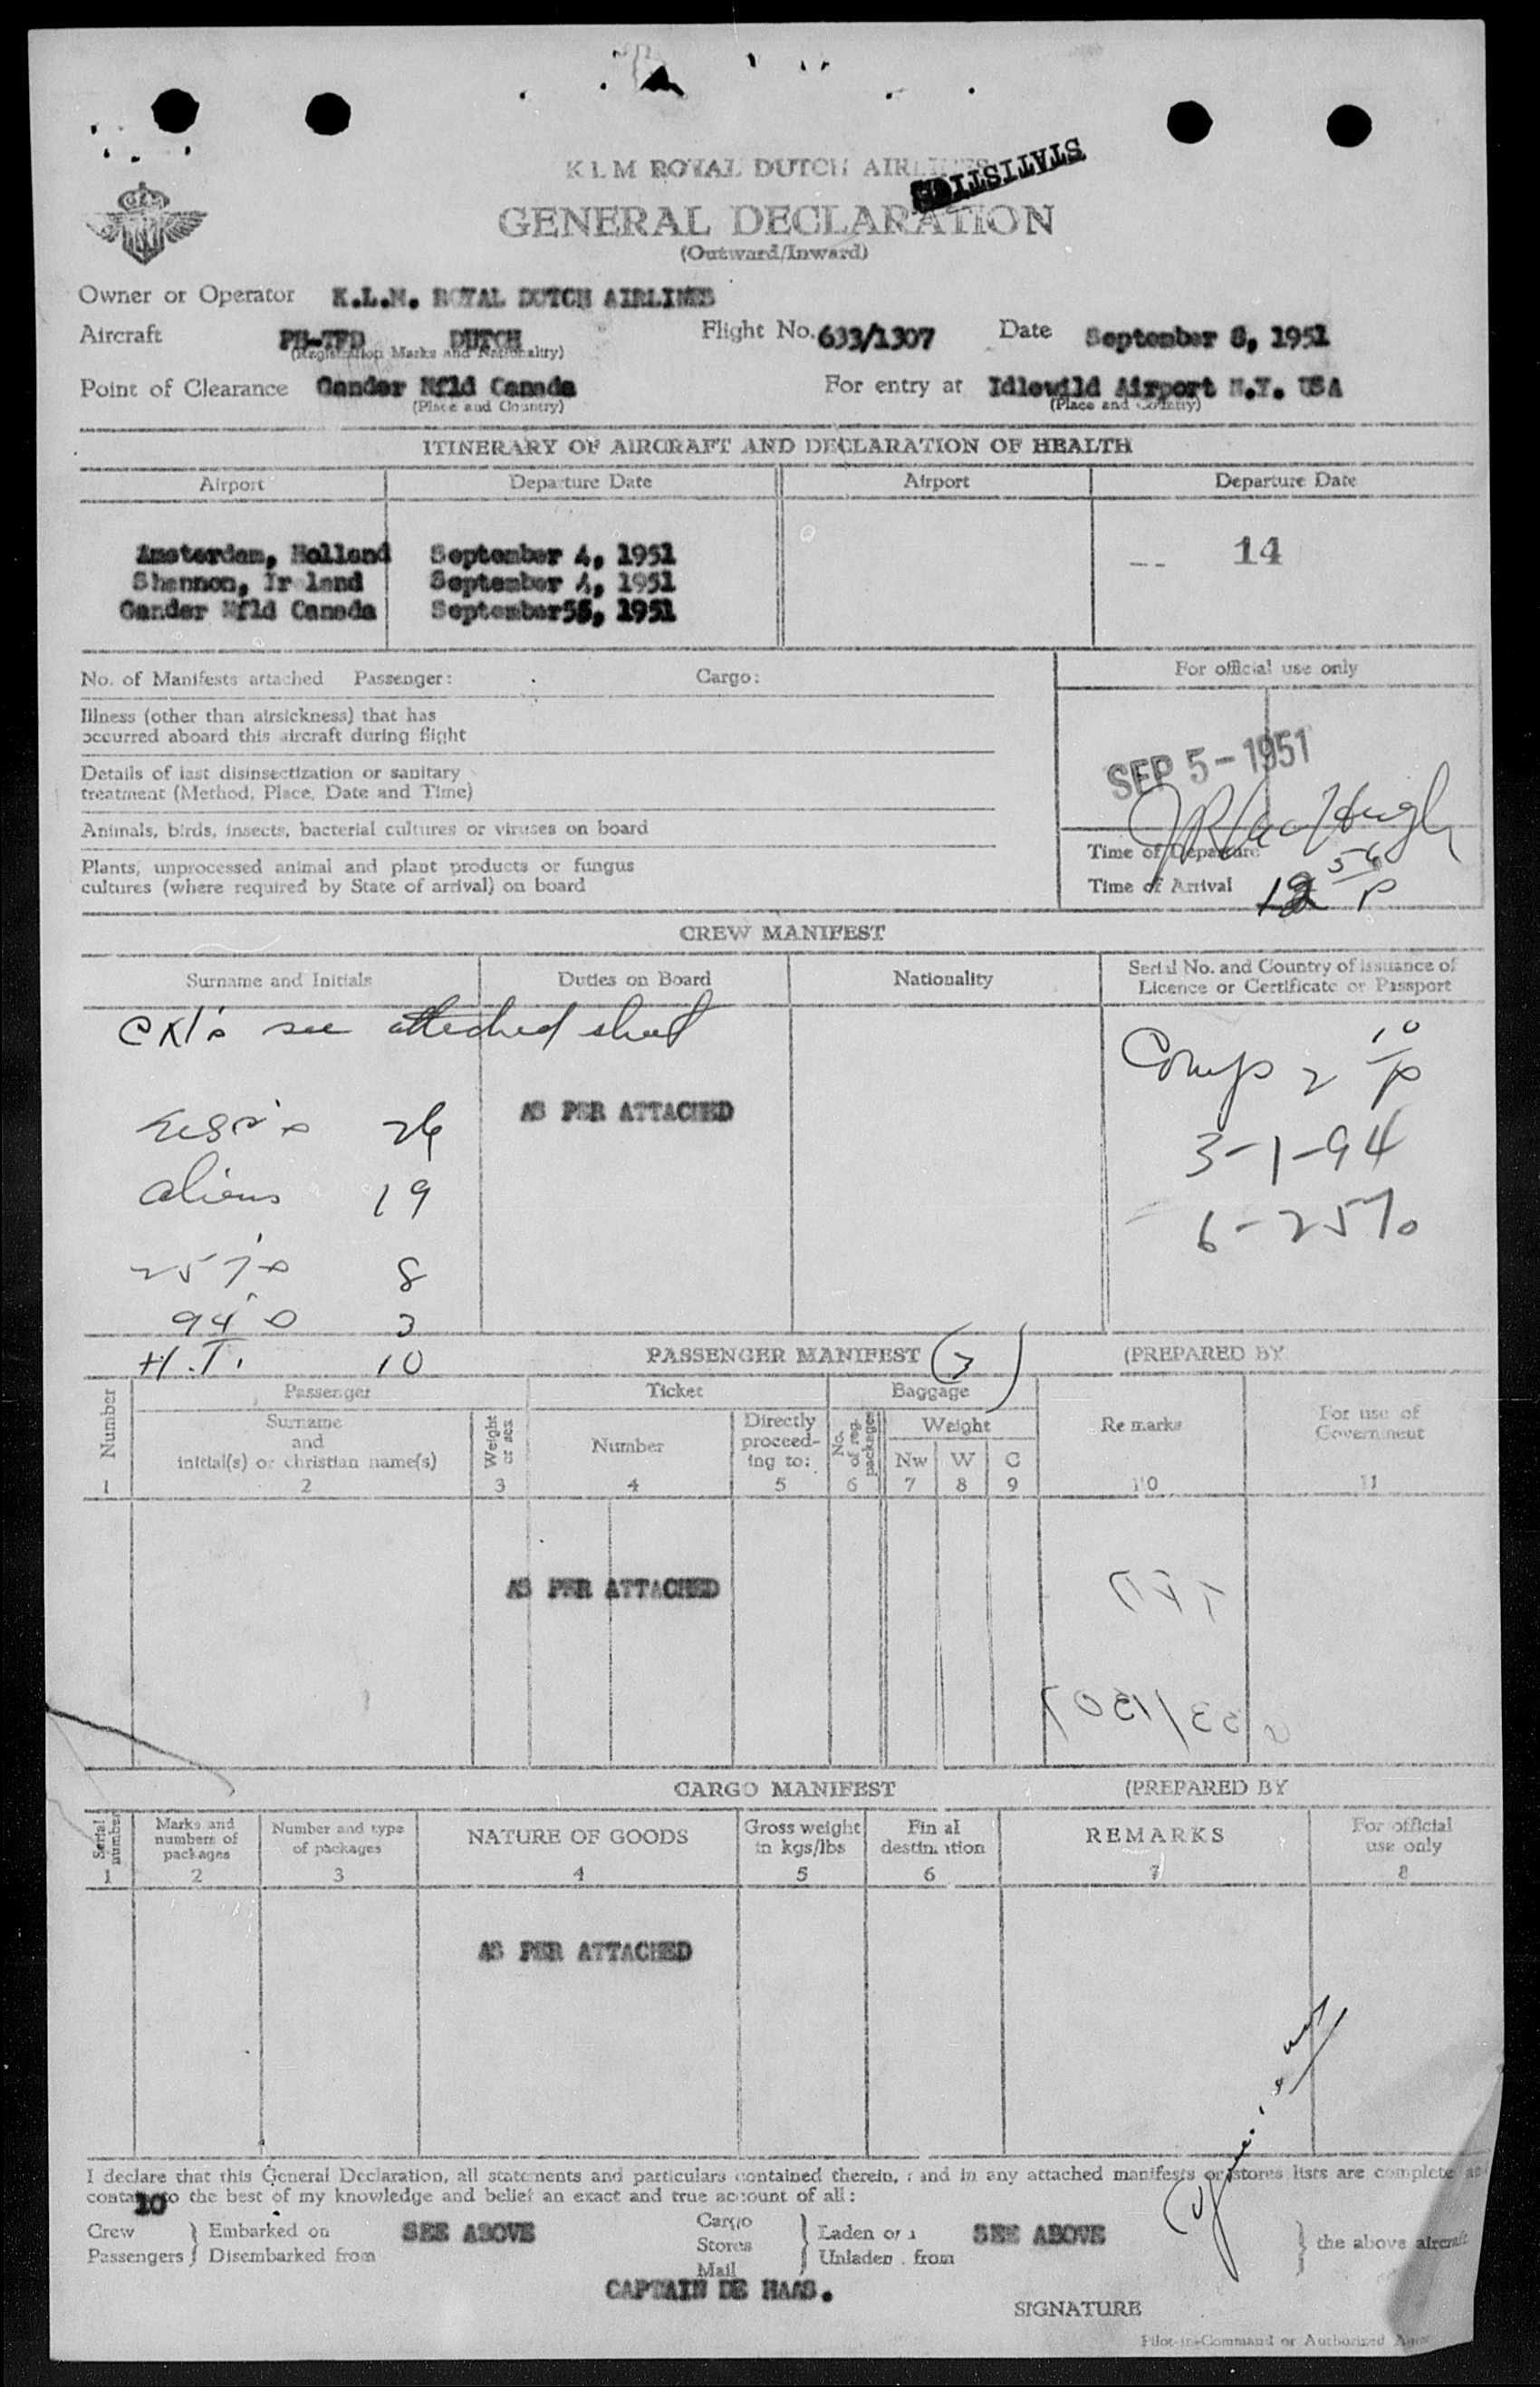 K L M ROYAL DUTCH AIRLINES
STATISTICS
GENERAL DECLARATION
(Outward/Inward)
Owner or Operator K.L.M. ROYAL DUTCH AIRLINES
Aircraft PH-TFD DUTCH Flight No. 633/1307 Date September 8, 1951
(Registration Marks and Nationality)
Point of Clearance Gander Nfld Canada For entry at Idlewild Airport N.Y. USA
(Place and Country) (Place and Country)
ITINERARY OF AIRCRAFT AND DECLARATION OF HEALTH
Airport Departure Date Airport Departure Date
14
Amsterdam, Holland September 4, 1951
Shannon, Ir land September 4, 1951
Gander Nfld Canada September 5, 1951
No. of Manifests attached Passenger: Cargo: For official use only
Illness (other than airsickness) that has
occurred aboard this aircraft during flight
SEP 5 - 1951
Details of last disinsectization or sanitary
treatment (Method, Place, Date and Time)
Animals, birds, insects, bacterial cultures or viruses on board
Time of Departure
Plants, unprocessed animal and plant products or fungus
cultures (where required by State of arrival) on board
Time of Arrival 12 56 P
CREW MANIFEST
Surname and Initials Duties on Board Nationality Serial No. and Country of issuance of
Licence or Certificate or Passport
see attached sheet
Comp 2 10 P
AS PER ATTACHED
26
3-1-94
aliens 19
6-257's
257's 8
94's 3
H.T. 10 PASSENGER MANIFEST (3) (PREPARED BY
Number Passenger Ticket Baggage Remarks For use of
Government
Surname
and
initial(s) or christian name(s)
Weight or sex Number Directly
proceed-
ing to: No. of reg. packages Weight
Nw W C
1 2 3 4 5 6 7 8 9 10 11
AS PER ATTACHED
CARGO MANIFEST (PREPARED BY
Serial number Marks and
numbers of
packages Number and type
of packages NATURE OF GOODS Gross weight
in kgs/lbs Final
destination REMARKS For official
use only
1 2 3 4 5 6 7 8
AS PER ATTACHED
I declare that this General Declaration, all statements and particulars contained therein, and in any attached manifests or stores lists are complete
to the best of my knowledge and belief an exact and true account of all:
10
Crew Embarked on SEE ABOVE Cargo Laden on SEE ABOVE the above aircraft
Passengers Disembarked from Stores Unladen from
Mail
CAPTAIN DE HAAS.
SIGNATURE
Pilot-in-Command or Authorized